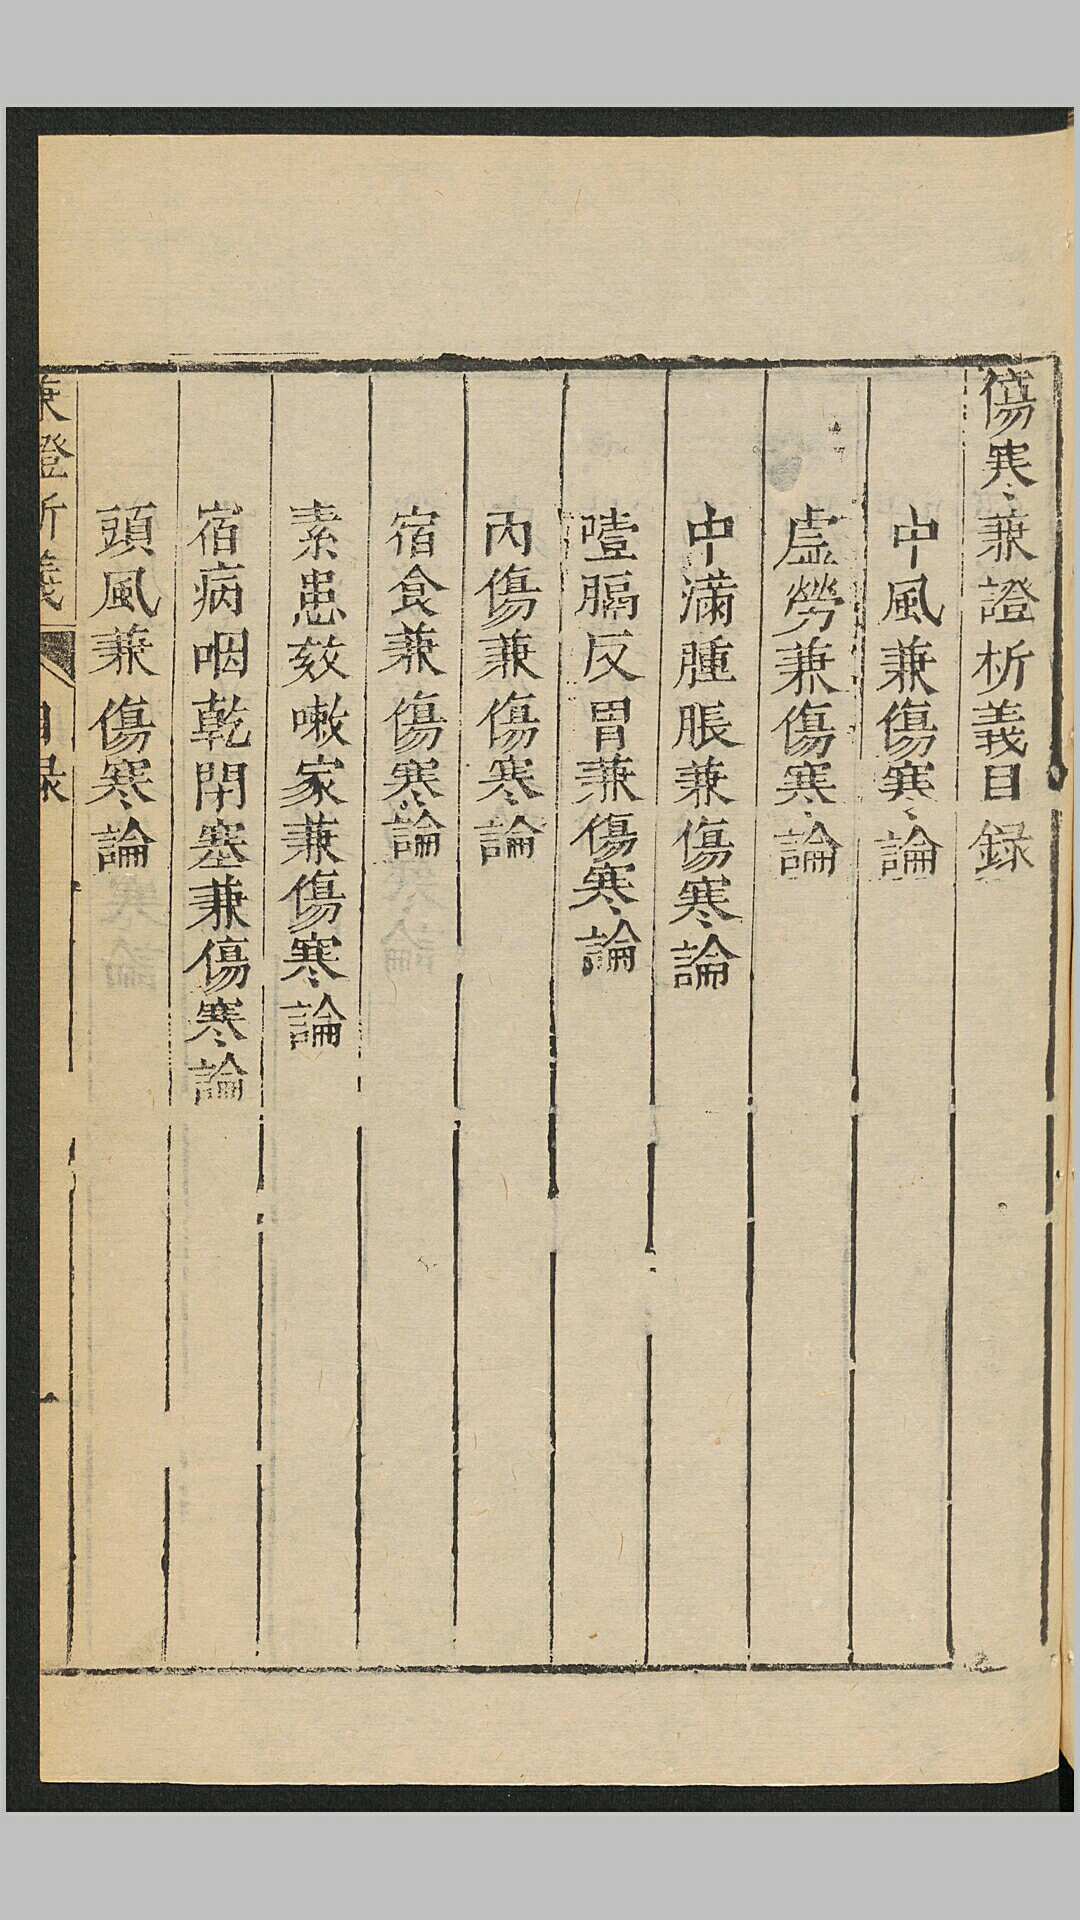 傷寒兼證析義目録
中風兼傷寒論
虛勞兼傷寒論
中滿腫脹兼傷寒論
噎膈反胃兼傷寒論
內傷兼傷寒論
宿食兼傷寒論
素患欬嗽家兼傷寒論
宿病咽乾閉塞兼傷寒論
頭風兼傷寒論
兼證析義 目録 一